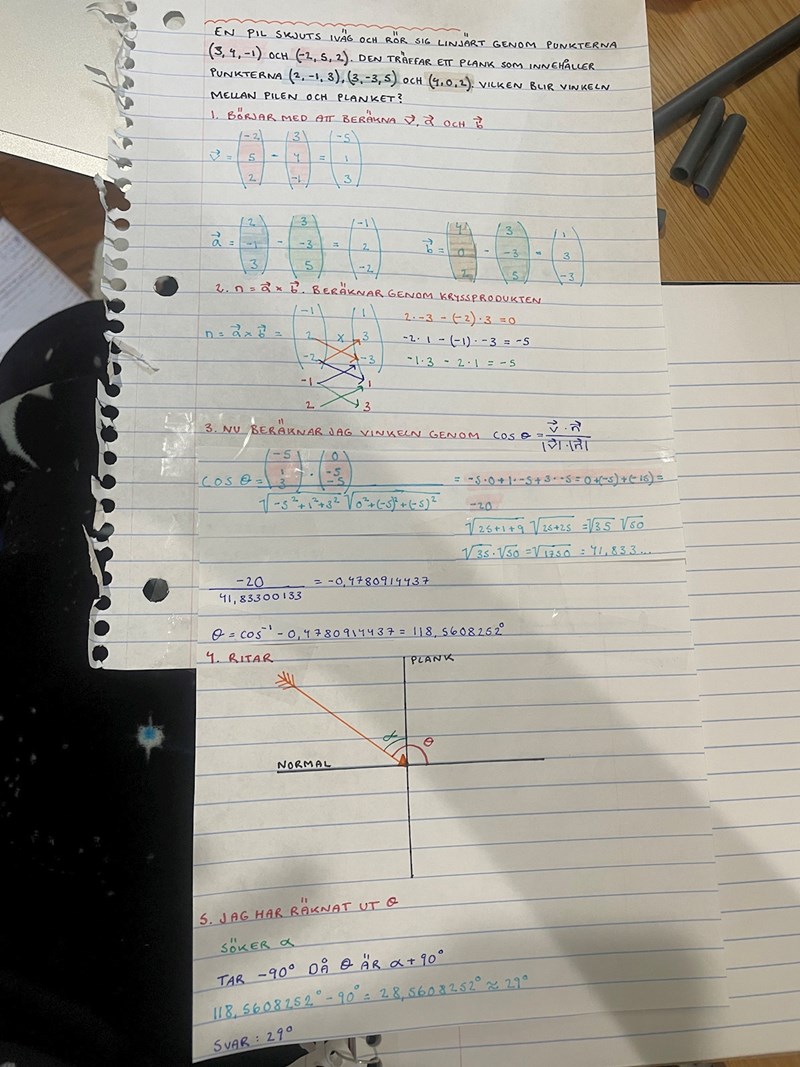 EN PIL SKJUTS IVÄG OCH RÖR SIG LINJÄRT GENOM PUNKTERNA
(3, 4, -1) OCH (-2, 5, 2). DEN TRÄFFAR ETT PLANK SOM INNEHÅLLER
PUNKTERNA (2, -1, 3), (3, -3, 5) OCH (4, 0, 2). VILKEN BLIR VINKELN
MELLAN PILEN OCH PLANKET?
1. BÖRJAR MED ATT BERÄKNA v⃗, a⃗ OCH b⃗
v⃗ = (-2 5 2) - (3 4 -1) = (-5 1 3)
a⃗ = (2 -1 3) - (3 -3 5) = (-1 2 -2) b⃗ = (4 0 2) - (3 -3 5) = (1 3 -3)
2. n = a⃗ × b⃗. BERÄKNAR GENOM KRYSSPRODUKTEN
n = a⃗ × b⃗ = (-1 2 -2) × (1 3 -3)
-1 1
2 3
2·-3 - (-2)·3 = 0
-2·1 - (-1)·-3 = -5
-1·3 - 2·1 = -5
3. NU BERÄKNAR JAG VINKELN GENOM COS θ = v⃗·n⃗ / |v⃗|·|n⃗|
COS θ = (-5 1 3) · (0 -5 -5) / √-5²+1²+3² √0²+(-5)²+(-5)²
= -5·0+1·-5+3·-5 = 0+(-5)+(-15) =
-20
√25+1+9 √25+25 = √35 √50
√35·√50 = √1750 = 41,833...
-20 / 41,83300133 = -0,4780914437
θ = cos⁻¹ -0,4780914437 = 118,5608252°
4. RITAR
PLANK
α θ
NORMAL
5. JAG HAR RÄKNAT UT θ
SÖKER α
TAR -90° DÅ θ ÄR α+90°
118,5608252° - 90° = 28,5608252° ≈ 29°
SVAR: 29°